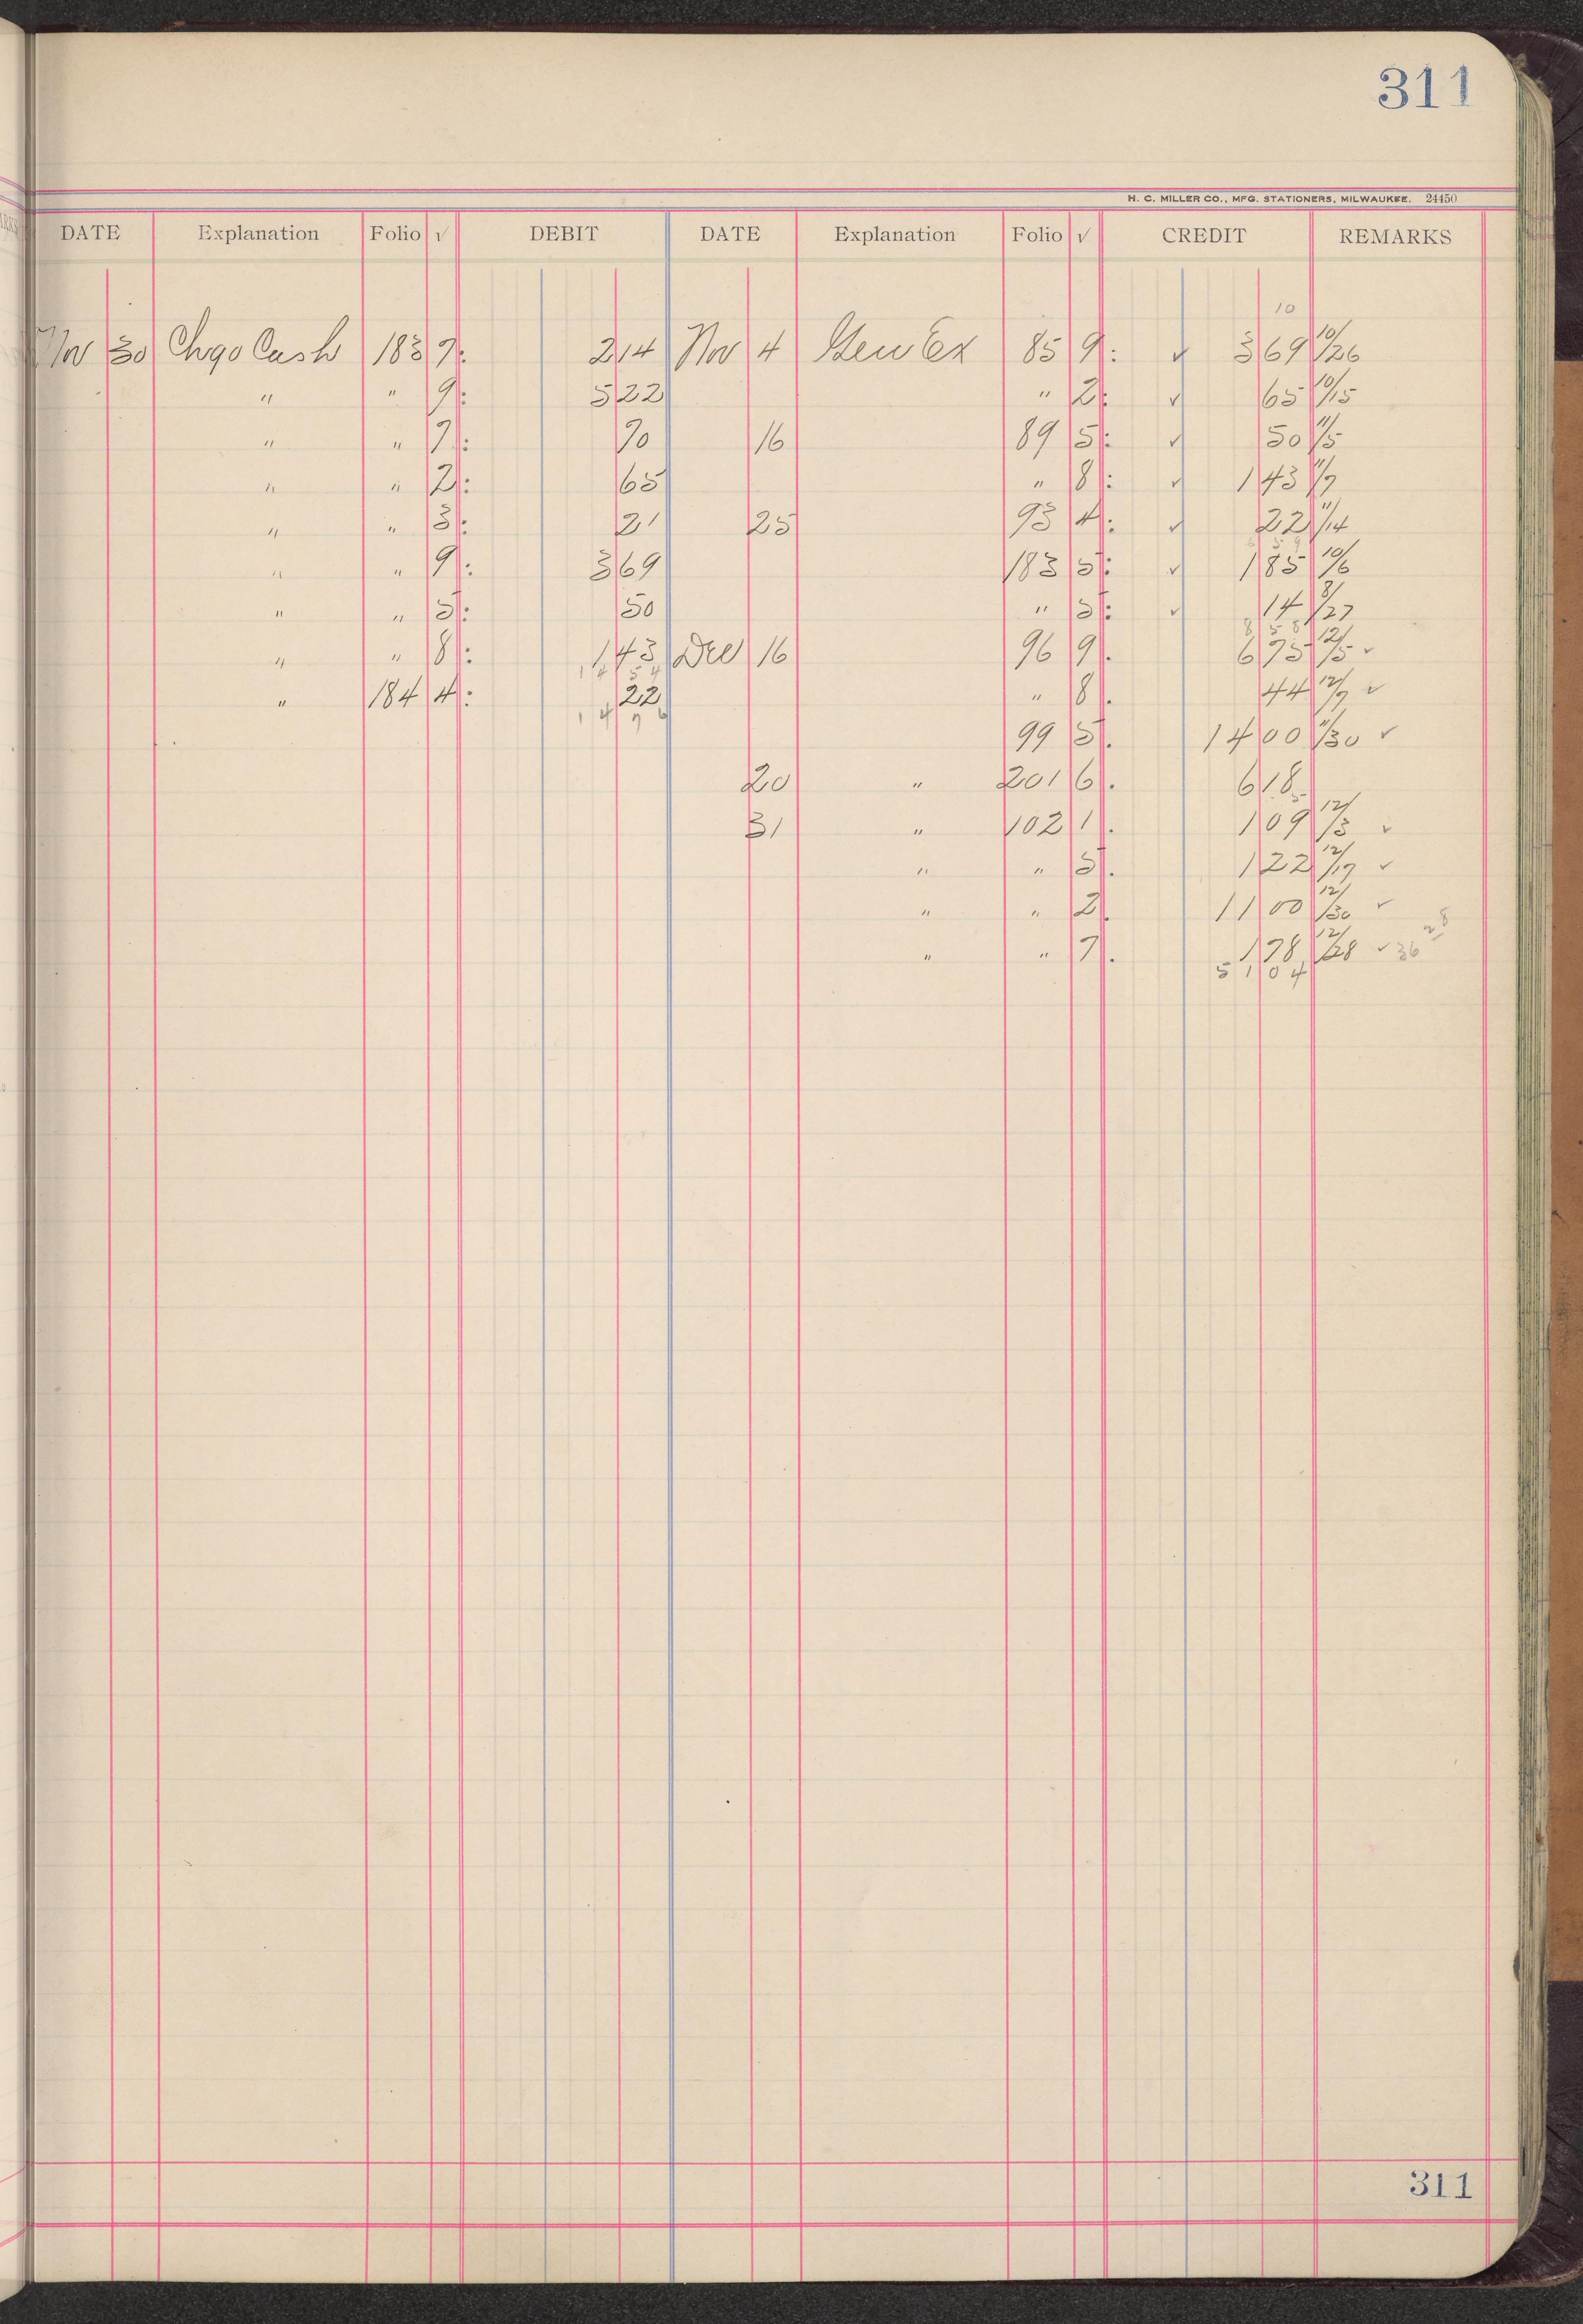 311
H. C. MILLER CO., MFG. STATIONERS, MILWAUKEE. 24450
DATE Explanation Folio √ DEBIT DATE Explanation Folio √ CREDIT REMARKS
10
Nov 30 Chgo Cash 183 7: 2 14 Nov 4 Gen Ex 85 9: ✓ 3 69 10/26
" " 9: 5 22 " 2: ✓ 65 10/15
" " 7: 70 16 89 5: ✓ 50 11/5
" " 2: 65 " 8: ✓ 1 43 11/7
" " 3: 21 25 93 4: ✓ 22 11/14
" " 9: 3 69 183 5: ✓ 1 85 10/6
" " 5: 50 " 5: ✓ 14 8/27
" " 8: 1 43 Dec 16 96 9. 6 75 12/5 ✓
14 54
" 184 4: 22 " 8. 44 12/7 ✓
14 76
99 5. 14 00 11/30 ✓
20 " 201 6. 6 18
31 " 102 1. 1 09 12/3 ✓
" " 5. 1 22 12/17 ✓
" " 2. 11 00 12/30 ✓
" " 7. 1 78 12/28 ✓ 36 28
51 04
311